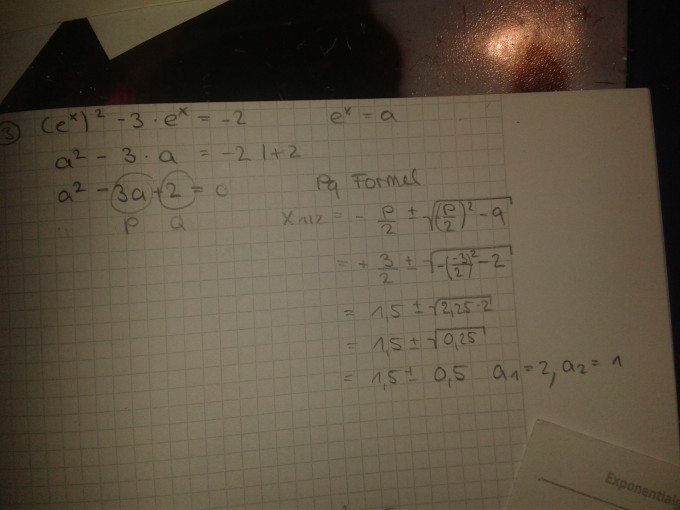 3 (eˣ)² - 3 · eˣ = -2 eˣ = a
a² - 3 · a = -2 |+2
a² - 3a + 2 = 0
P Q
Pq Formel
X₁,₂ = - P/2 ± √((P/2)² - q)
= + 3/2 ± √(-(-3/2)² - 2)
= 1,5 ± √(2,25 - 2)
= 1,5 ± √(0,25)
= 1,5 ± 0,5 a₁ = 2, a₂ = 1